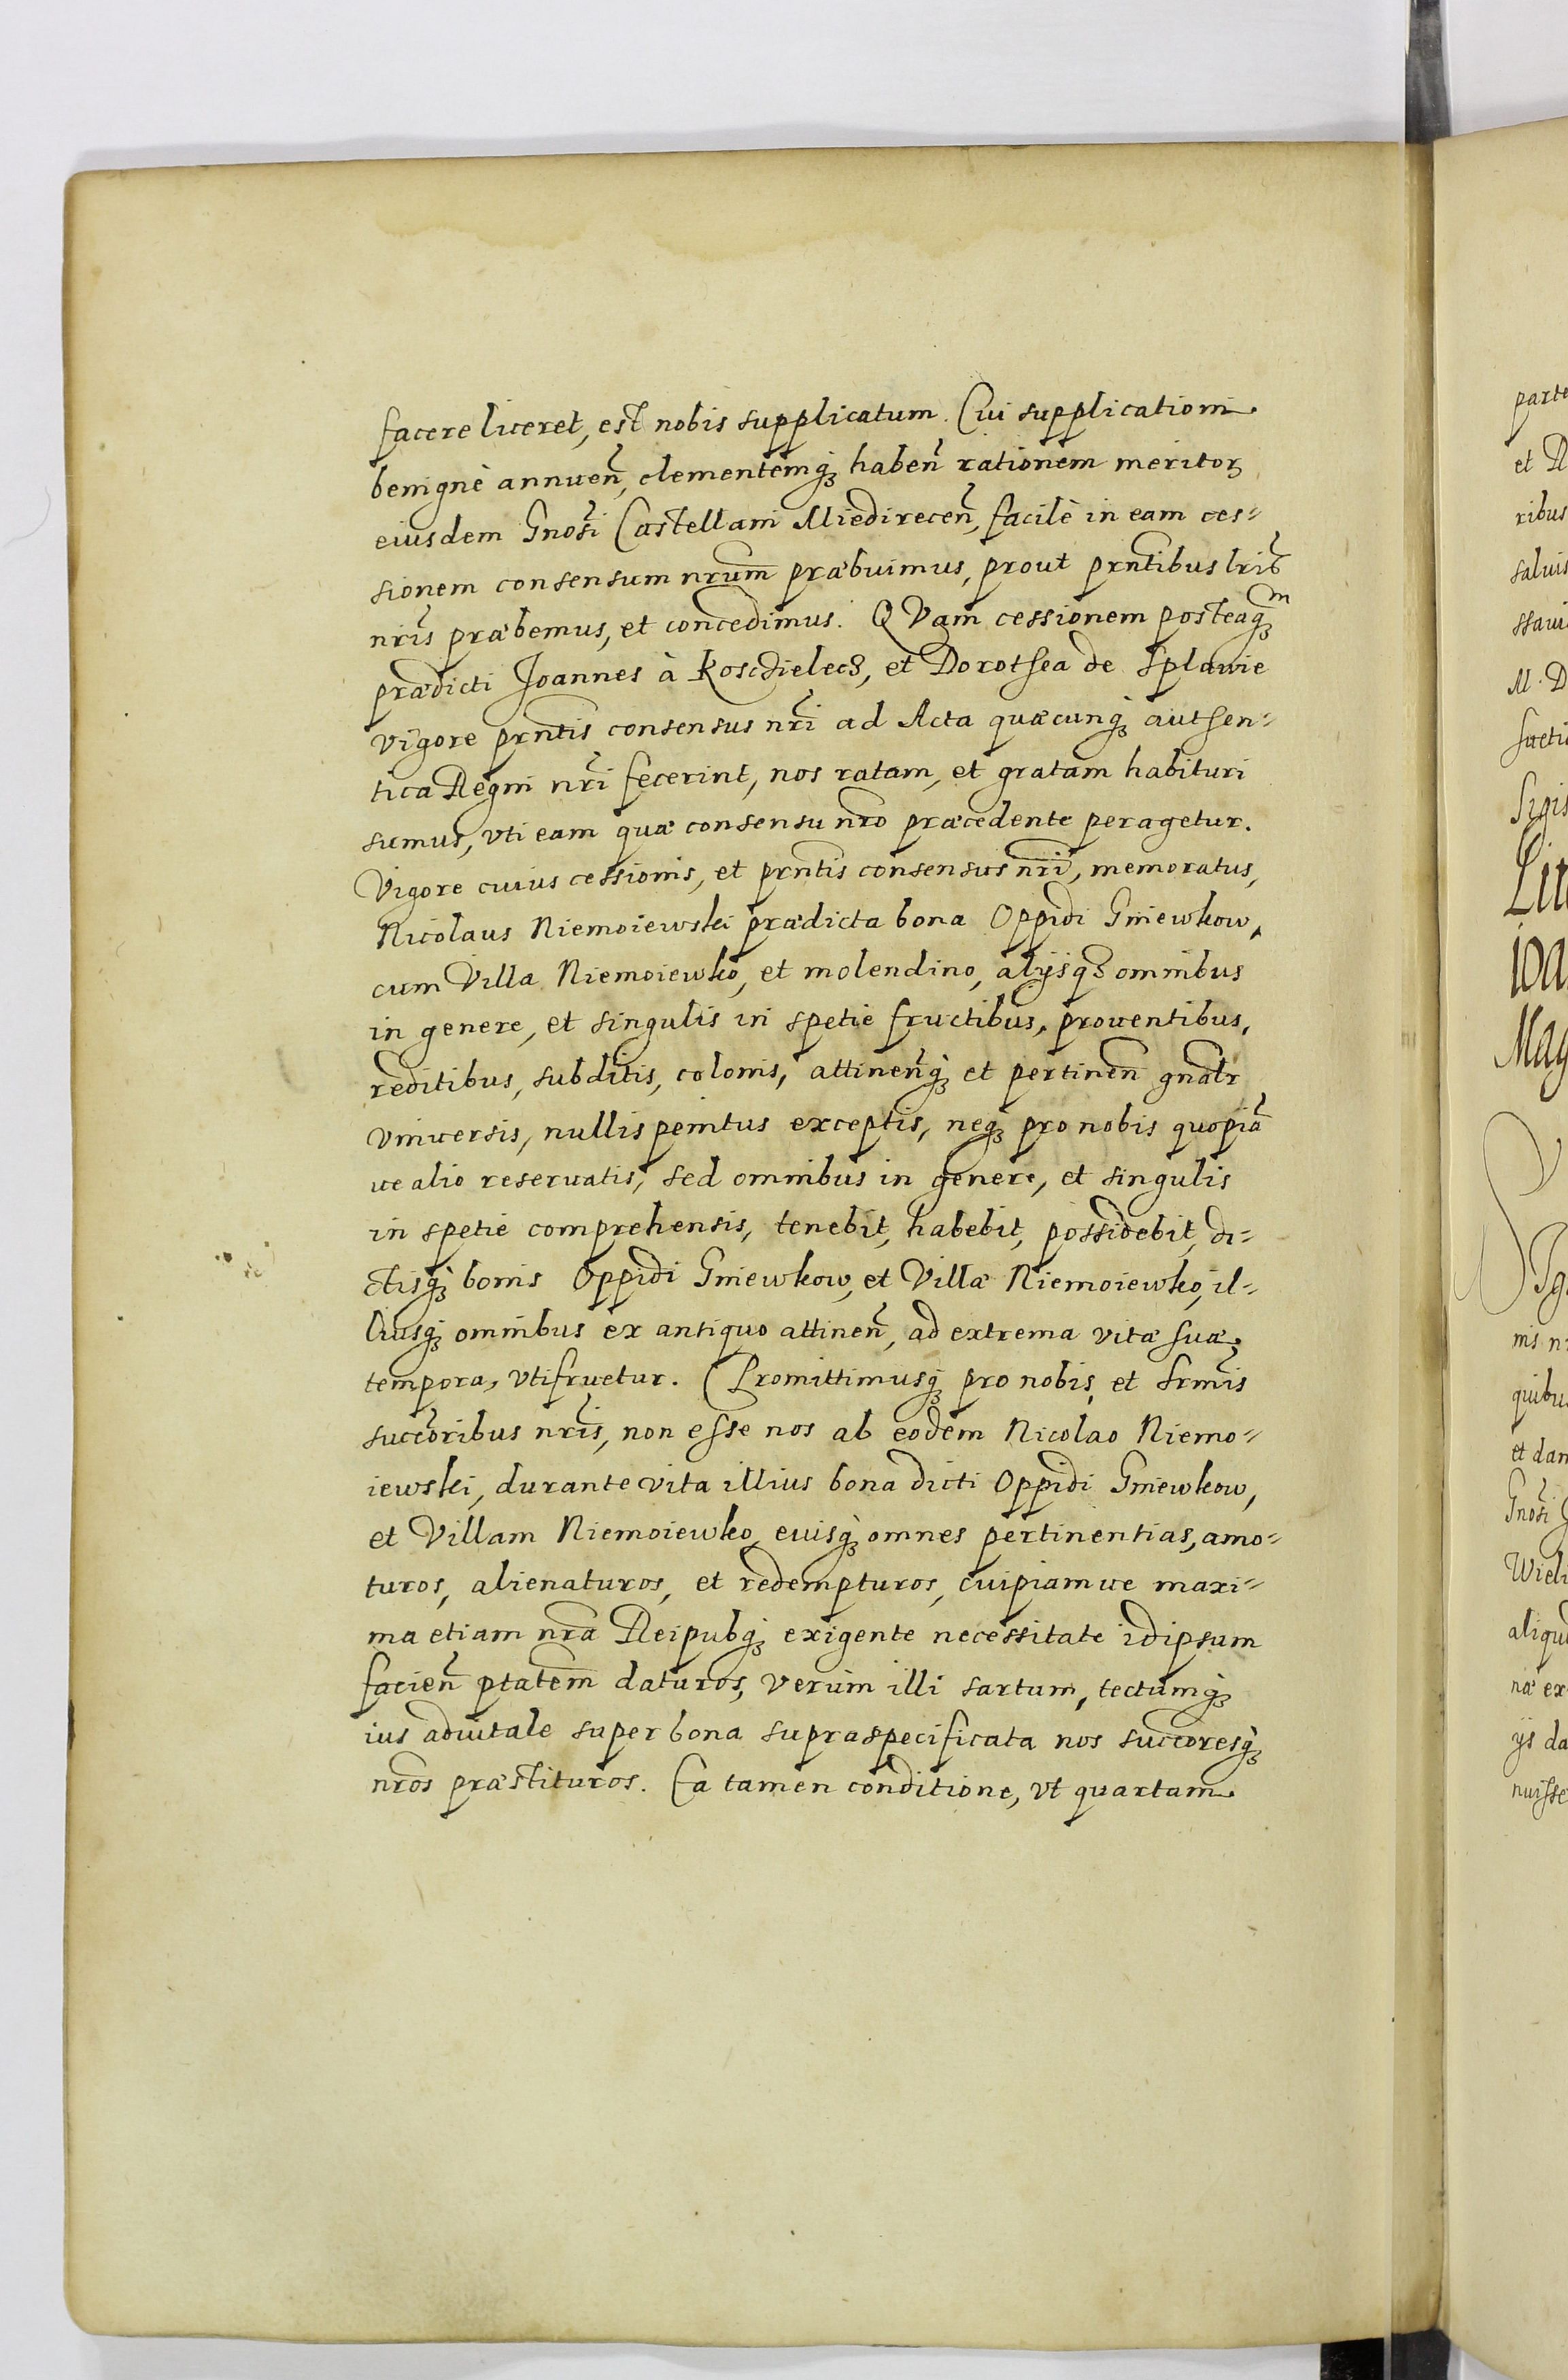 facere liceret, est nobis supplicatum. Cui supplicationi
benignè annuen̄, clementemq́ꝫ haben̄ rationem meritoꝝ
eiusdem Gnosi Castellani Miedirecen̄, facilè in eam ces⸗
sionem consensum nrum̄ præbuimus, prout prn̄tibus lris̄
nris̄ præbemus, et concedimus. QVam cessionem posteaq́ꝫᵐ
prædicti Joannes à Koscielecz, et Dorothea de Splawie
vigore prn̄tis consensus nrī ad Acta quæcunq́ꝫ authen⸗
tica Regni nrī fecerint, nos ratam, et gratam habituri
sumus, vti eam quæ consensu nro̅ præcedente peragetur.
Vigore cuius cessionis, et prn̄tis consensus nri̅, memoratus,
Nicolaus Niemoiewski prædicta bona Oppidi Gniewkow,
cum Villa Niemoiewko, et molendino, alijsqꝫ omnibus
in genere, et singulis in spetie fructibus, prouentibus,
reditibus, subditis, colonis, attinen̄q́ꝫ et pertinen̄ gnalr̄
vniuersis, nullis penitus exceptis, neq́ꝫ pro nobis quopiā
ue alio reseruatis, sed omnibus in genere, et singulis
in spetie comprehensis, tenebit, habebit, possidebit, di⸗
ctisq́ꝫ bonis Oppidi Gniewkow, et Villæ Niemoiewko, il⸗
liusq́ꝫ omnibus ex antiquo attinen̄, ad extrema vitæ suæ
tempora, vtifruetur. Promittimusq́ꝫ pro nobis, et Srmis̄
succōribus nris̄, non esse nos ab eodem Nicolao Niemo⸗
iewski, durante vita illius bona dicti Oppidi Gniewkow,
et Villam Niemoiewko, euisq́ꝫ omnes pertinentias, amo⸗
turos, alienaturos, et redempturos, cuipiamue maxi⸗
ma etiam nra̅ Reipubq́ꝫ exigente necessitate idipsum
facien̄ ptatem̄ daturos, verùm illi sartum, tectumq́ꝫ
ius aduitale super bona supraspecificata nos succoresq́ꝫ
nros̄ præstituros. Ea tamen conditione, vt quartam
parte
et R
ribus
saluis
ssaui
M. D
Sigis
Lit
IOA
Mag
nis n
quibu
et dan
Gnosi
Wiel
aliqu
næ ex
ijs da
nuisse